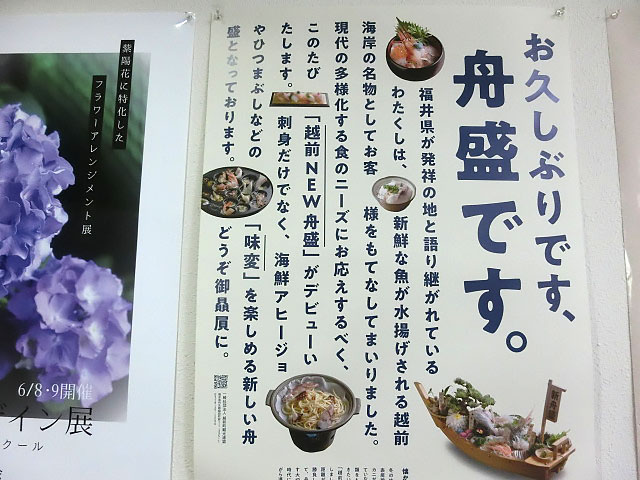 お久しぶりです、
舟盛です。
福井県が発祥の地と語り継がれている
わたくしは、新鮮な魚が水揚げされる越前
海岸の名物としてお客様をもてなしてまいりました。
現代の多様化する食のニーズにお応えするべく、
このたび「越前NEW舟盛」がデビューい
たします。刺身だけでなく、海鮮アヒージョ
やひつまぶしなどの「味変」を楽しめる新しい舟
盛となっております。どうぞ御贔屓に。
紫陽花に特化した
フラワーアレンジメント展
6/8・9開催
ザイン展
クール